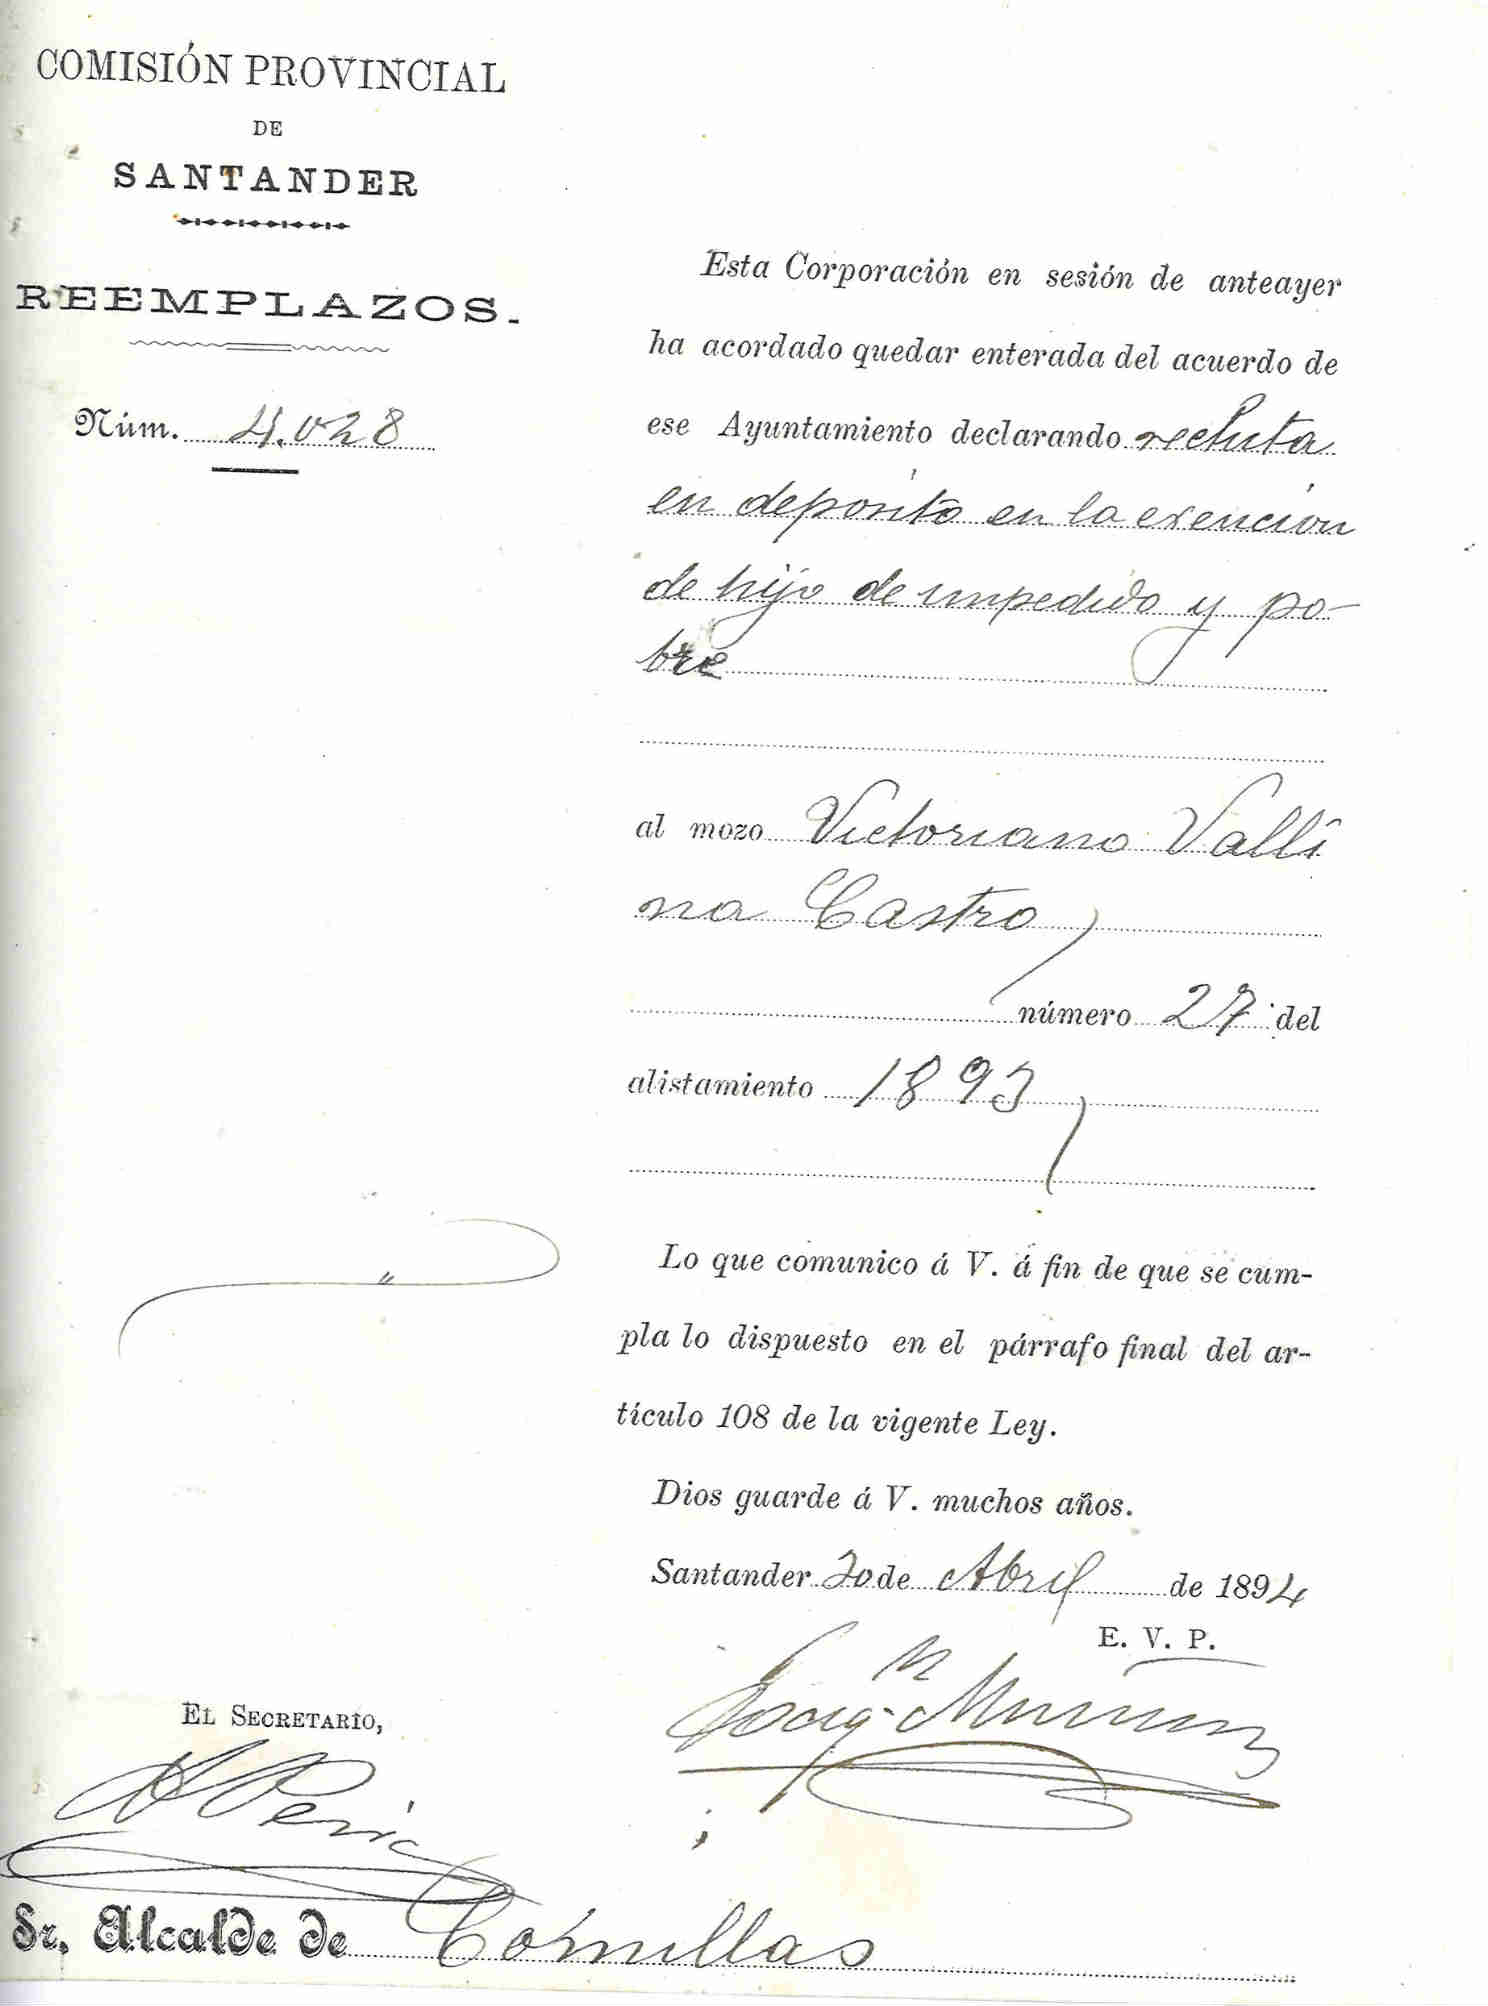 COMISIÓN PROVINCIAL
DE
SANTANDER
REEMPLAZOS.
Núm. 4.028
Esta Corporación en sesión de anteayer
ha acordado quedar enterada del acuerdo de
ese Ayuntamiento declarando recluta
en depósito en la exención
de hijo de impedido y po-
bre
al mozo Victoriano Valli
na Castro
número 27 del
alistamiento 1893
Lo que comunico á V. á fin de que se cum-
pla lo dispuesto en el párrafo final del ar-
tículo 108 de la vigente Ley.
Dios guarde á V. muchos años.
Santander 20 de Abril de 1894
E. V. P.
EL SECRETARIO,
Sr. Alcalde de Comillas